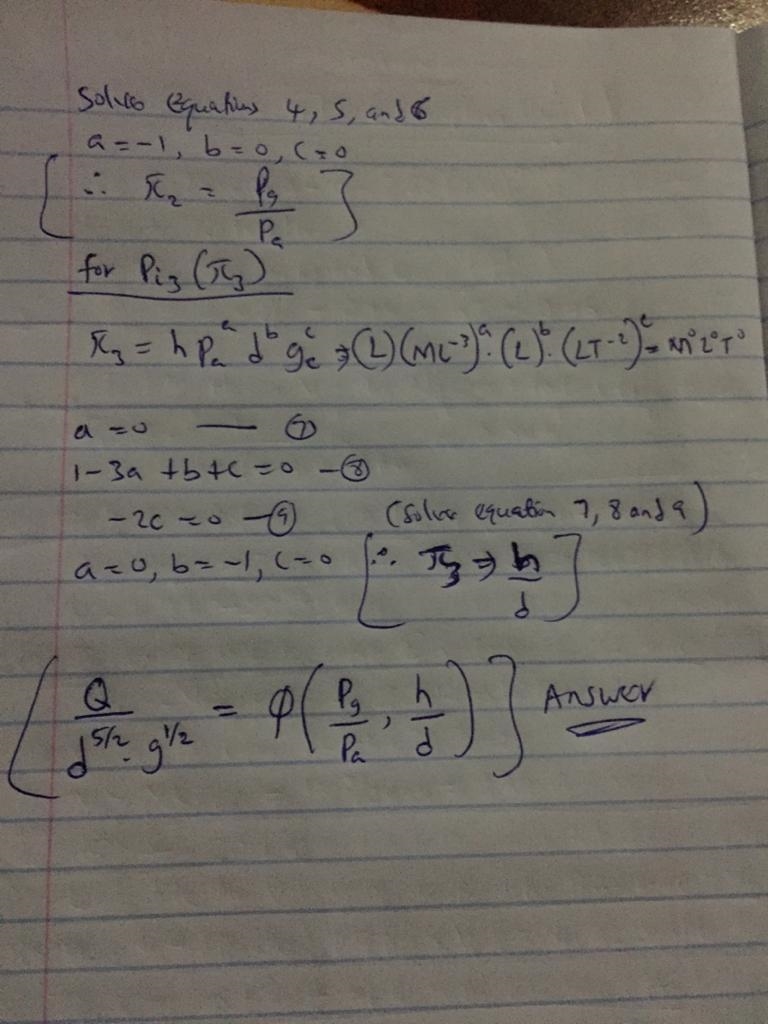 Solve equations 4, 5, and 6
a = -1, b = 0, c = 0
[∴ π₂ = Pg/Pa]
for Pi₃ (π₃)
π₃ = h Pₐᵃ dᵇ gᶜ ⇒ (L)(ML⁻³)ᵃ·(L)ᵇ·(LT⁻²)ᶜ = M⁰L⁰T⁰
a = 0 — ⑦
1 - 3a + b + c = 0 - ⑧
-2c = 0 - ⑨ (Solve equation 7, 8 and 9)
a = 0, b = -1, c = 0 [∴ π₃ ⇒ h/d]
[Q/(d^5/2 · g^1/2) = φ(Pg/Pa, h/d)] Answer